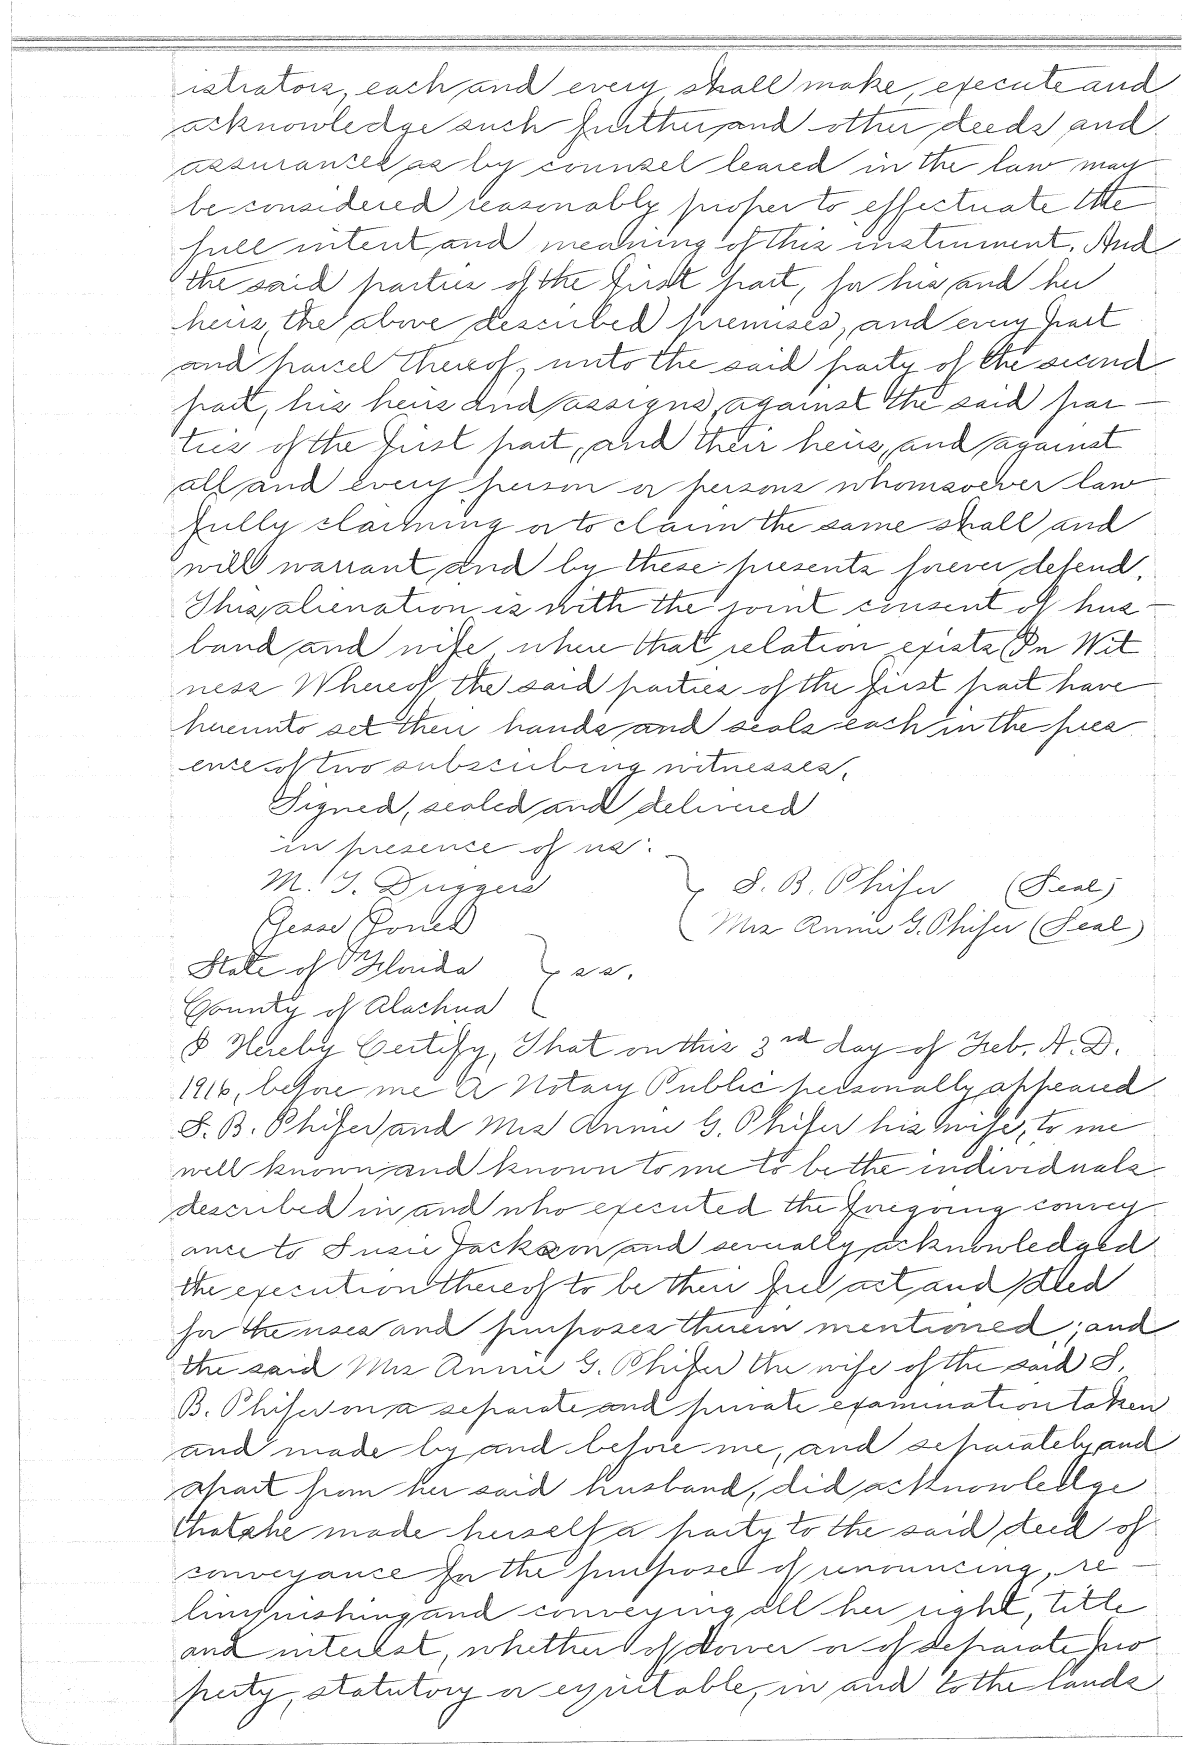 istrators, each and every, shall make, execute and
acknowledge such further and other deeds and
assurances as by counsel leared in the law may
be considered reasonably proper to effectuate the
full intent and meaning of this instrument. And
the said parties of the first part, for his and her
heirs, the above described premises, and every part
and parcel thereof, unto the said party of the second
part, his heirs and assigns, against the said par-
ties of the first part, and their heirs, and against
all and every person or persons whomsoever law
fully claiming or to claim the same shall and
will warrant and by these presents forever defend.
This alienation is with the joint consent of hus-
band and wife, where that relation exists In Wit
ness Whereof the said parties of the first part have
hereunto set their hands and seals each in the pres
ence of two subscribing witnesses.
Signed, sealed and delivered
in presence of us:
M. J. Duggers } S. B. Phifer (Seal)
Jesse Jones Mrs Annie G. Phifer (Seal)
State of Florida } ss.
County of Alachua
I Hereby Certify, That on this 3rd day of Feb. A.D.
1916, before me A Notary Public personally appeared
S. B. Phifer and Mrs Annie G. Phifer his wife, to me
well known and known to me to be the individuals
described in and who executed the foregoing convey
ance to Susie Jackson and severally acknowledged
the execution thereof to be their free act and deed
for the uses and purposes therein mentioned; and
the said Mrs Annie G. Phifer the wife of the said S.
B. Phifer on a separate and private examination taken
and made by and before me, and separately and
apart from her said husband, did acknowledge
that she made herself a party to the said deed of
conveyance for the purpose of renouncing, re-
linquishing and conveying all her right, title
and interest, whether of dower or of separate pro
perty, statutory or equitable, in and to the lands